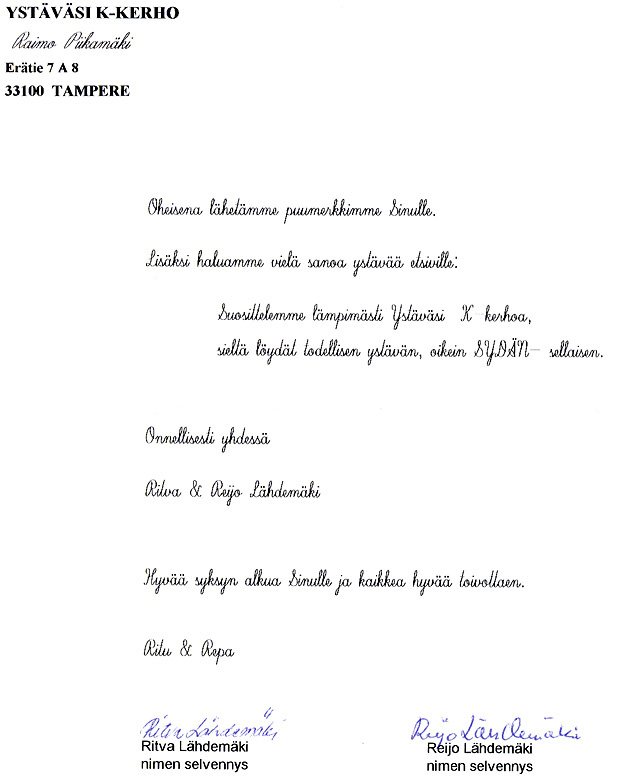 YSTÄVÄSI K-KERHO
Raimo Piikamäki
Erätie 7 A 8
33100 TAMPERE
Oheisena lähetämme puumerkkimme Sinulle.
Lisäksi haluamme vielä sanoa ystävää etsiville:
Suosittelemme lämpimästi Ystäväsi K kerhoa,
sieltä löydät todellisen ystävän, oikein SYDÄN- sellaisen.
Onnellisesti yhdessä
Ritva & Reijo Lähdemäki
Hyvää syksyn alkua Sinulle ja kaikkea hyvää toivottaen.
Ritu & Repa
Ritva Lähdemäki Reijo Lähdemäki
Ritva Lähdemäki Reijo Lähdemäki
nimen selvennys nimen selvennys